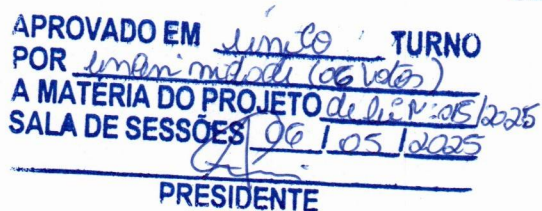 APROVADO EM único TURNO
POR unanimidade (06 votos)
A MATÉRIA DO PROJETO de lei Nº: 015/2025
SALA DE SESSÕES 06 / 05 / 2025
PRESIDENTE